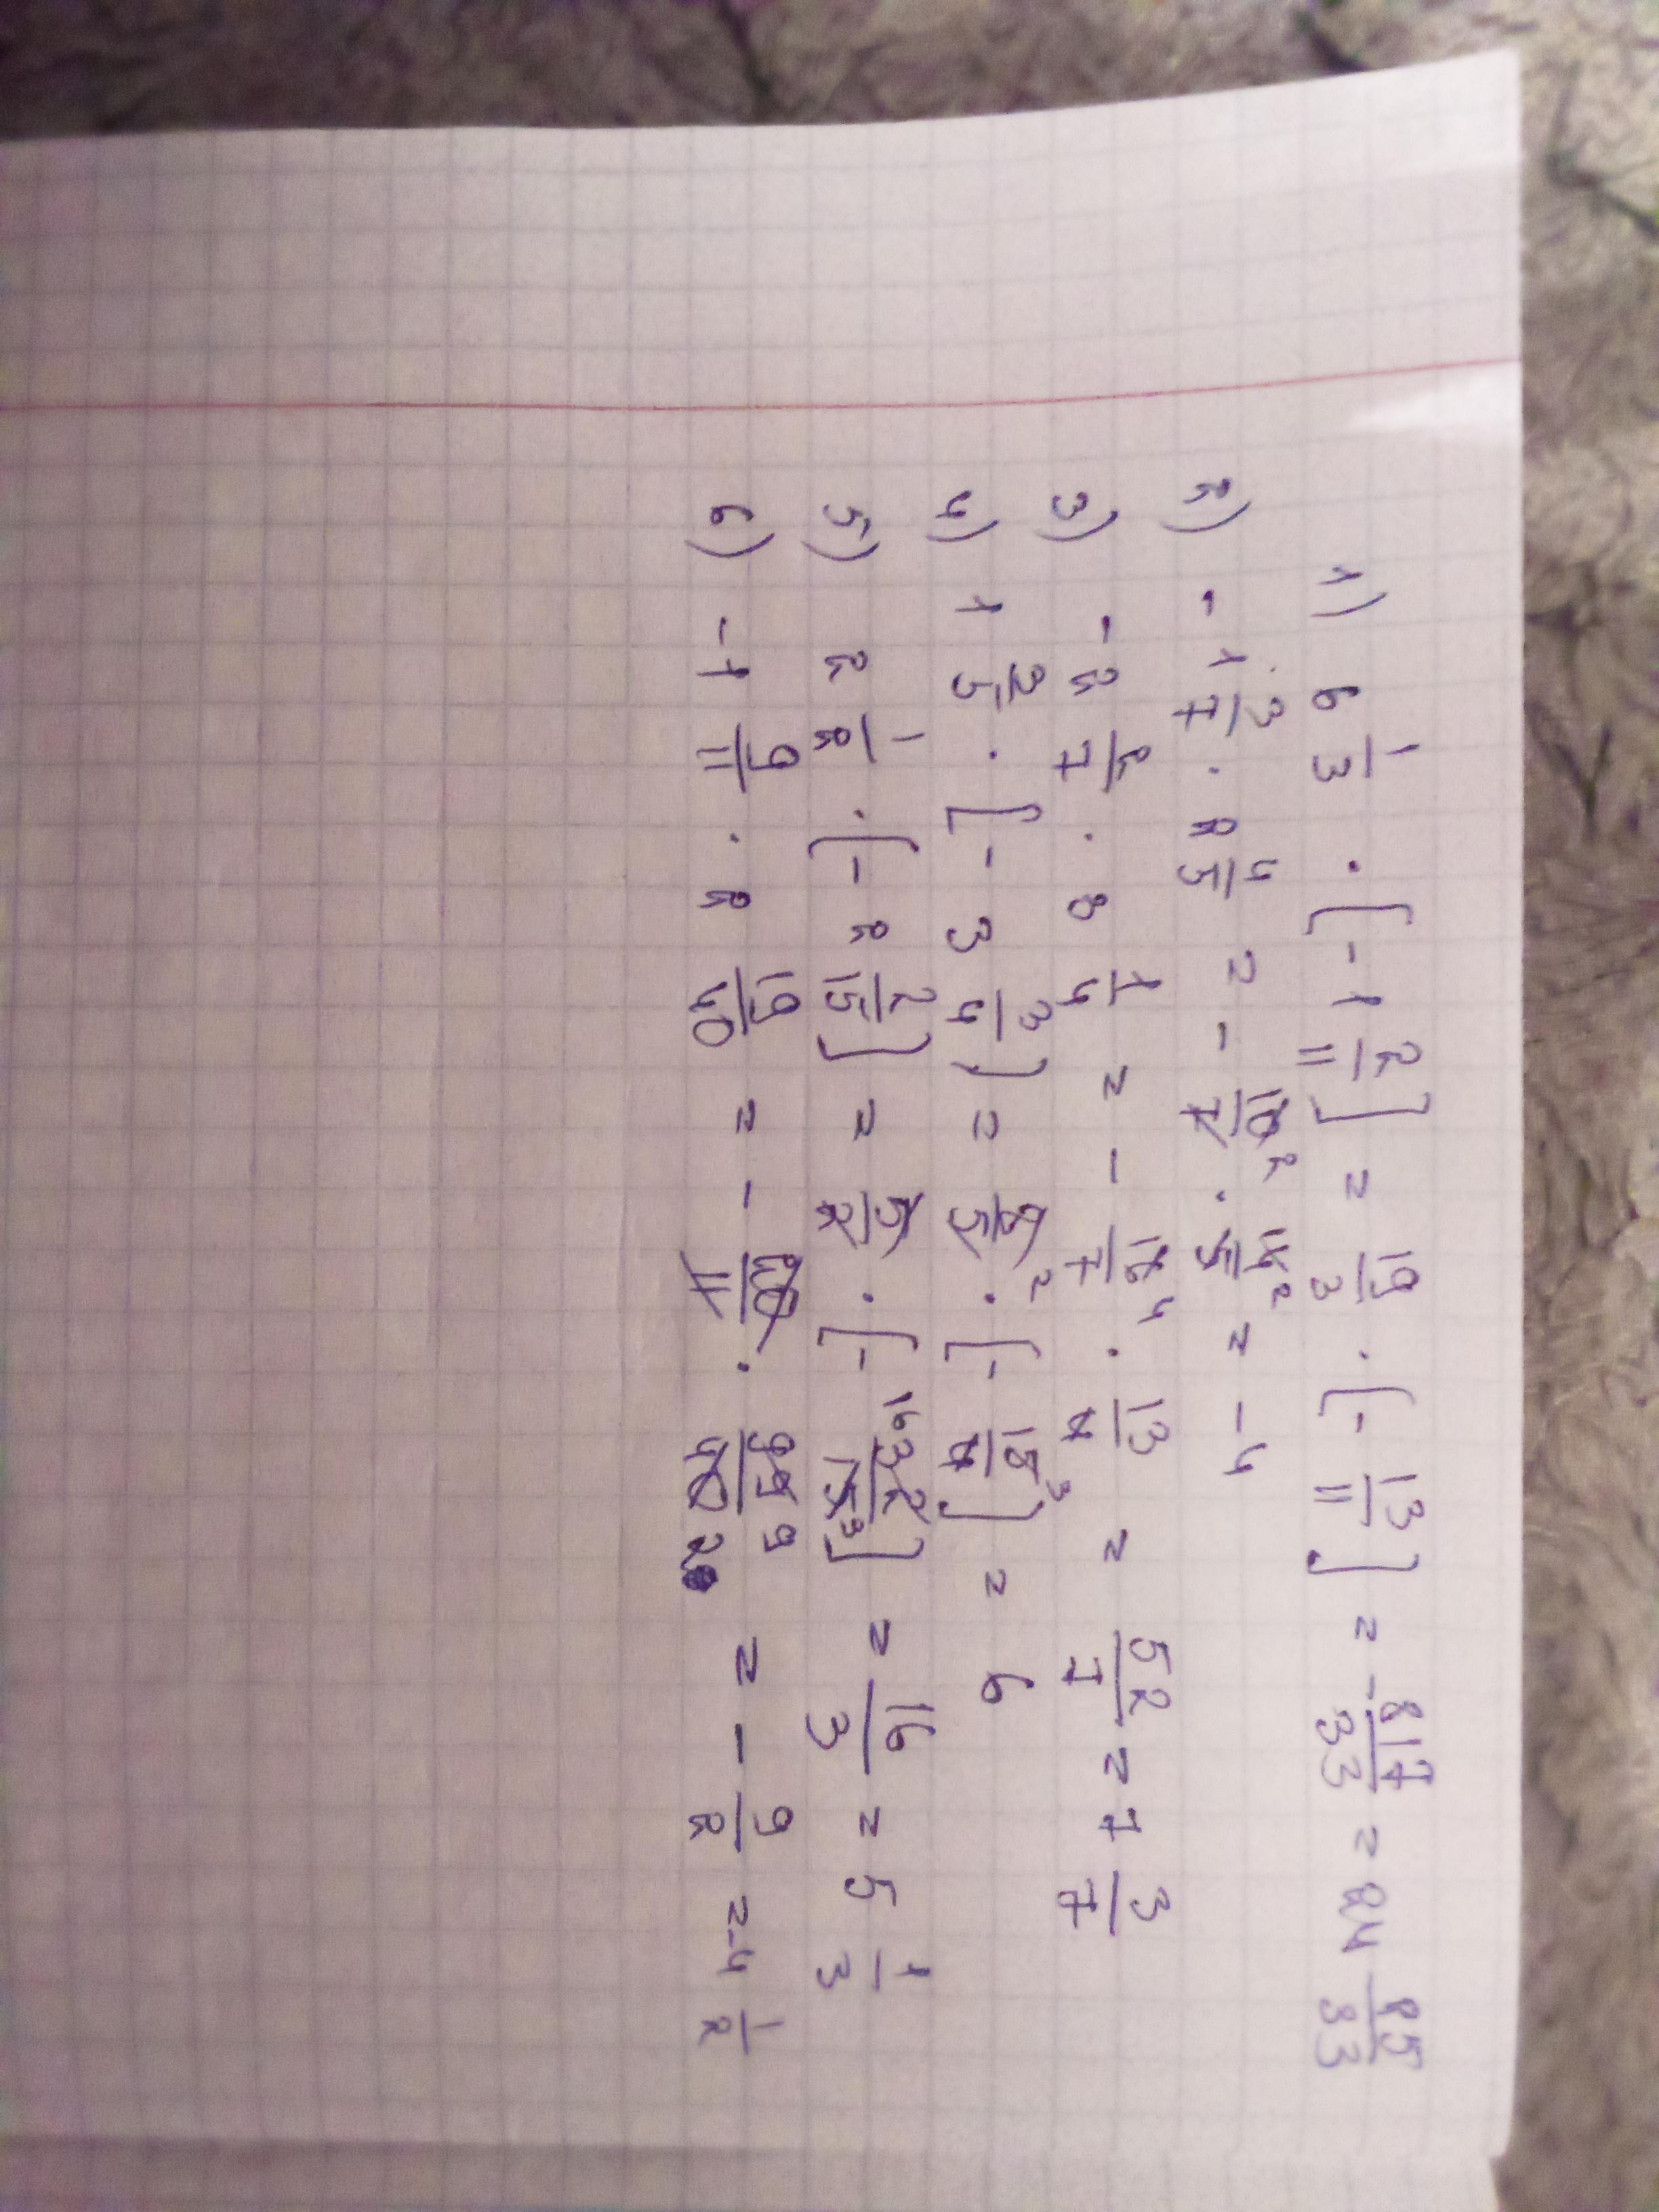 1) 6 1/3 · [-1 2/11] = 19/3 · [- 13/11] = - 817/33 = 24 25/33
2) - 1 3/7 · 2 4/5 = - 10/7 2 · 14/5 2 = -4
3) - 2 2/7 · 8 1/4 = - 16/7 4 · 13/4 = 52/7 = 7 3/7
4) 1 3/5 · [- 3 3/4] = 8/5 2 · [- 15/4 3] = 6
5) 2 1/2 · [- 2 2/15] = 5/2 · [- 16 32/15 3] = 16/3 = 5 1/3
6) -1 9/11 · 2 19/40 = - 20/11 · 99/40 9 2 = - 9/2 = -4 1/2